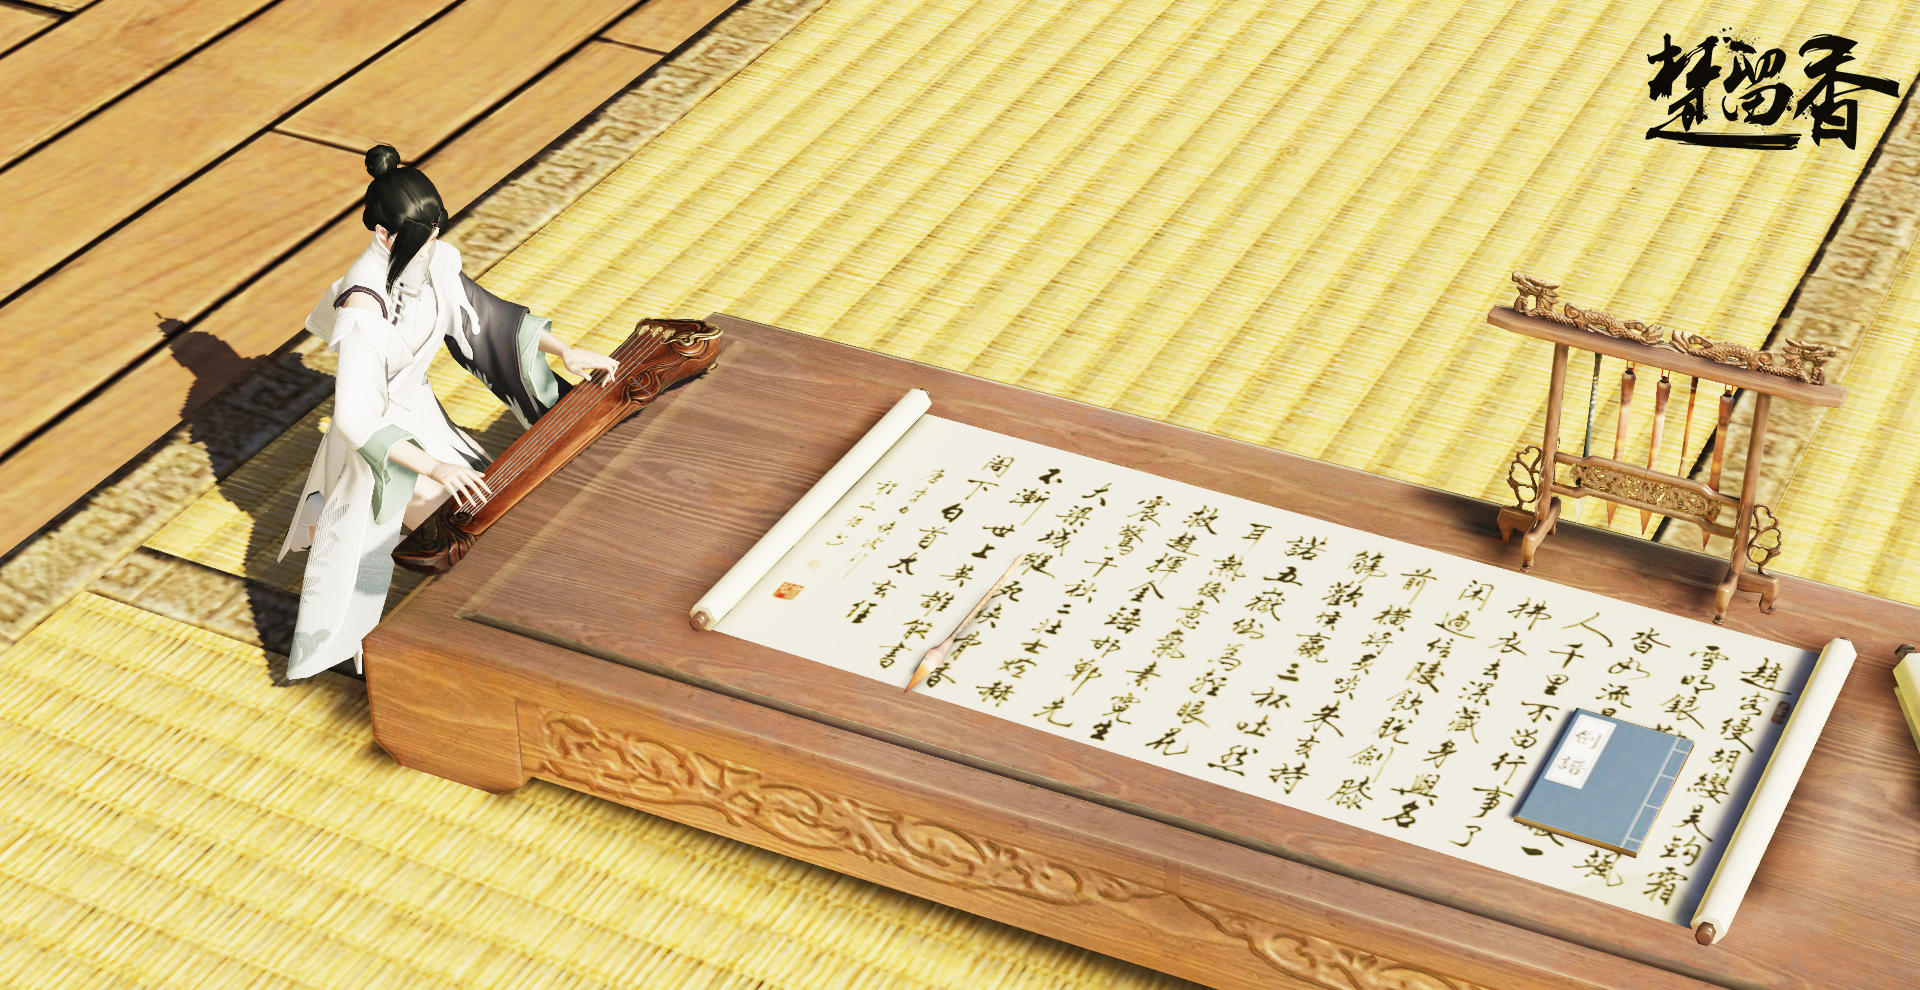 楚留香
趙客縵胡纓吴鈎霜
雪明銀 颯
沓如流 一
人千里不留行事了
拂衣去深藏身與名
闲過信陵飲脱劍膝
前横將炙啖朱亥持
觴勸侯嬴三杯吐然
諾五嶽倒為輕眼花
耳熱後意氣素霓生
救趙揮金鎚邯鄲先
震驚千秋二壮士烜赫
大梁城縱死 骨香
不慚世上英誰能書
閣下白首太玄經
唐李白俠客行
劍譜